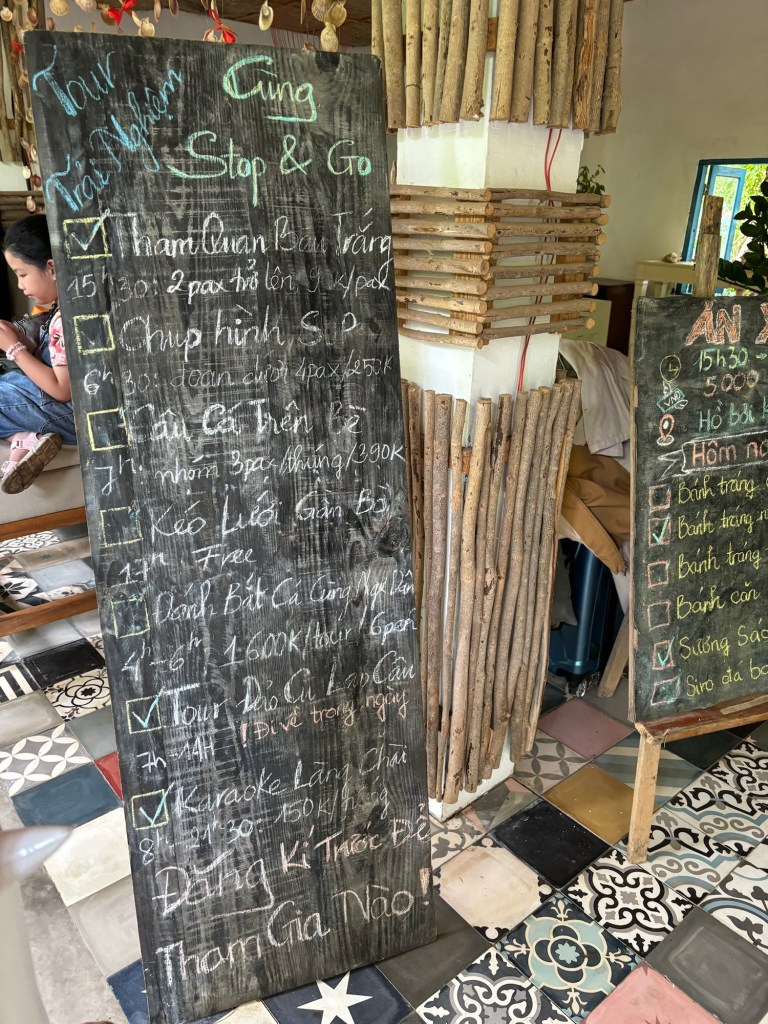 Tour
Trải Nghiệm
Cùng
Stop & Go
Tham Quan Bàu Trắng
15h30: 2pax trở lên k/pax
Chụp hình SUP
6h30: đoàn dưới 4pax/250K
Câu Cá Trên Bè
7h: nhóm 3pax/thúng/390K
Kéo Lưới Gần Bờ
17h Free
Đánh Bắt Cá Cùng Ngư Dân
4h-6h 1600K/tour/6pers
Tour Đảo Cù Lao Câu
7h-14H ! Đi về trong ngày
Karaoke Làng Chài
8h-21h30-150K/
Đăng Kí Trước Để
Tham Gia Nào!
ĂN X
15h30 -
5.000
VND
Hồ bơi
Hôm
Bánh tráng
Bánh tráng
Bánh tráng
Bánh căn
Sương Sáo
Siro đá